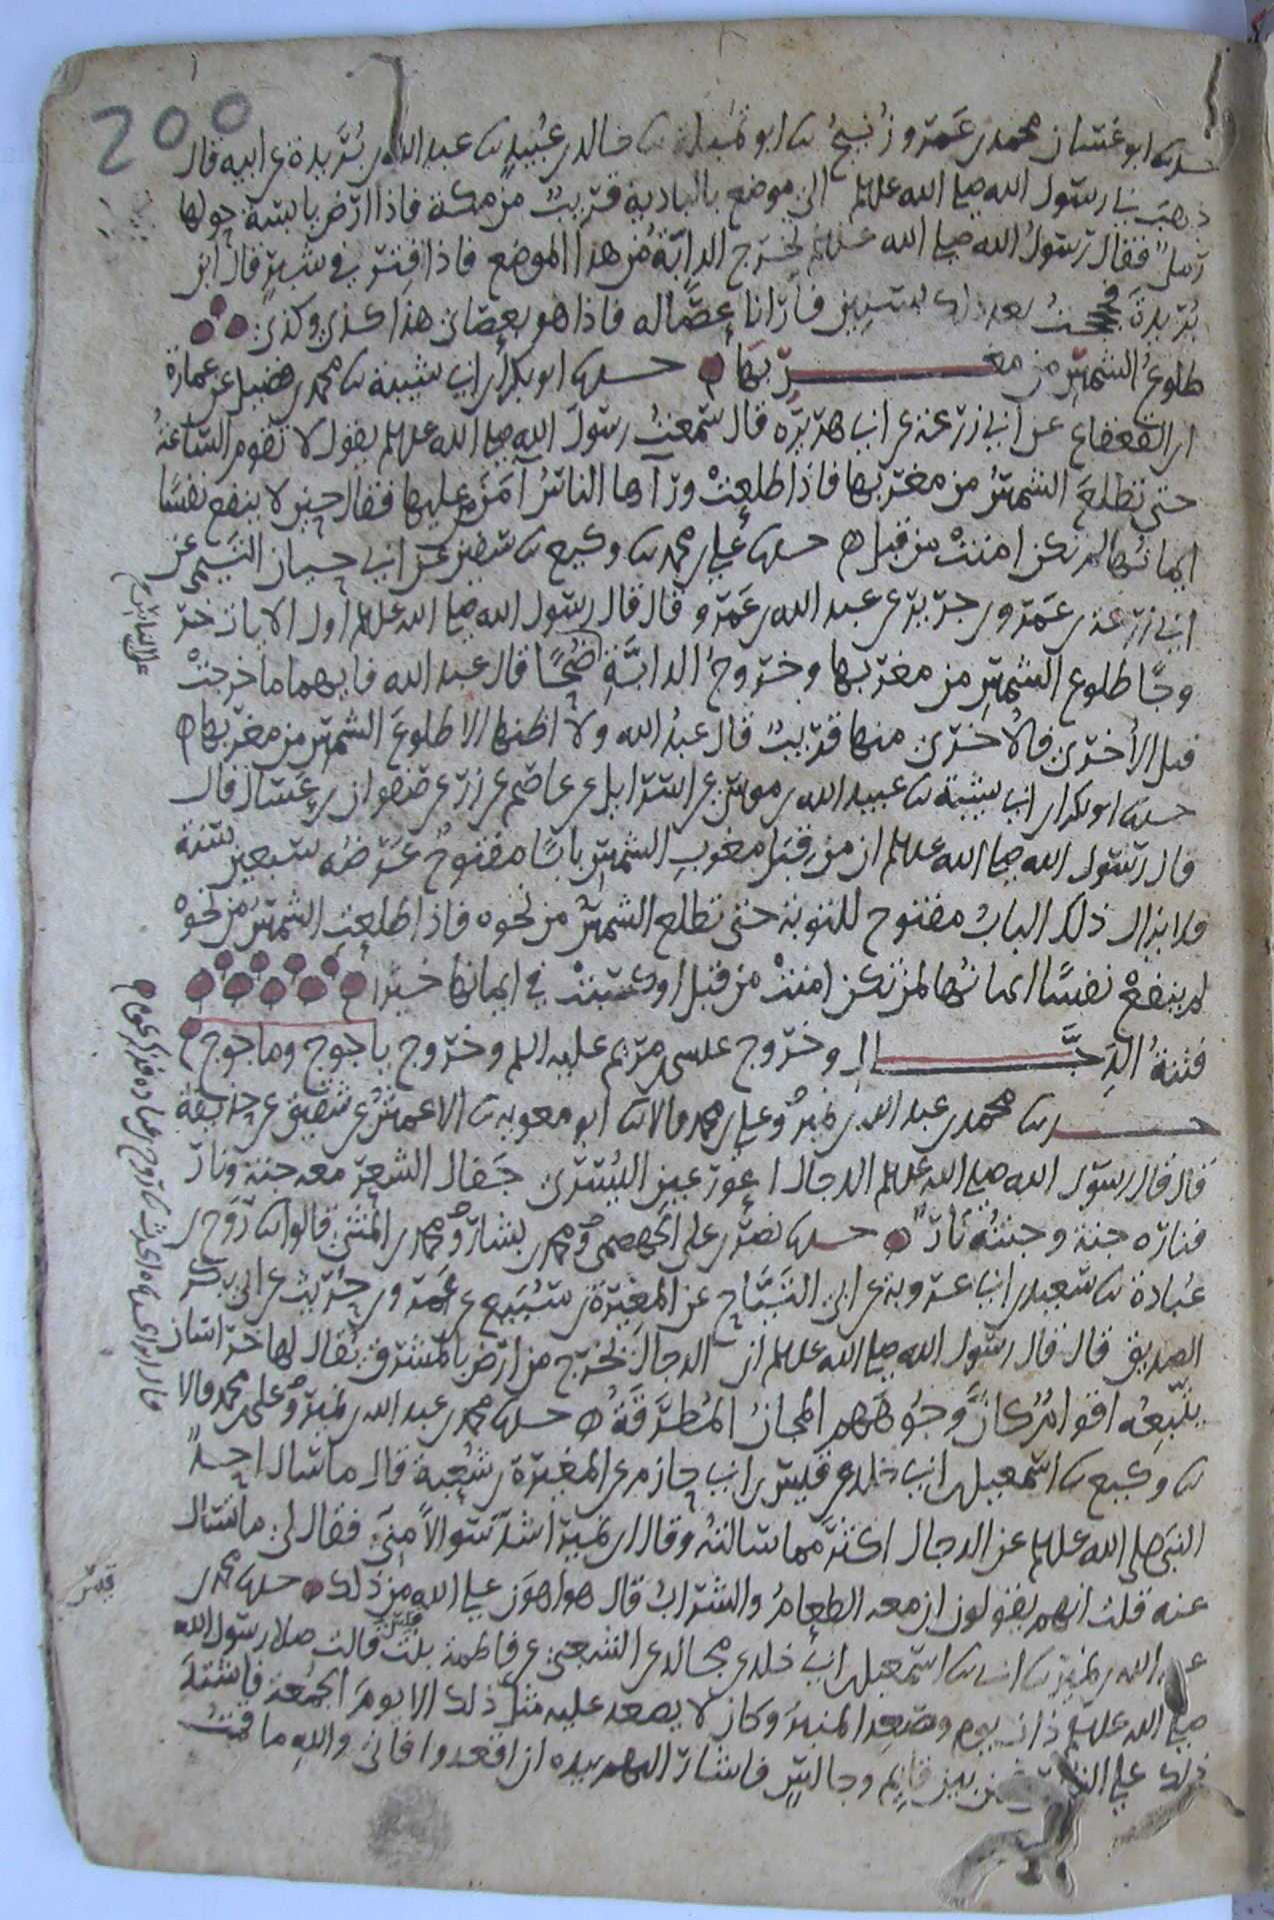 200
حدثنا ابو غسان محمد بن عمرو زنيج ثنا ابو تميلة ثنا خالد بن عبيد ثنا عبد الله بن بريدة عن ابيه قال
ذهب بي رسول الله صلى الله علىه وسلم الى موضع بالبادية قريب من مكة فاذا ارض يابسة حولها
رمل فقال رسول الله صلى الله علىه وسلم تخرج الدابة من هذا الموضع فاذا فتر في شبر قال ابن
بريدة فحججت بعد ذلك بسنين فارانا عصا له فاذا هو بعصاي هذا كذى وكذى
طلوع الشمس من مغربها حدثنا ابو بكر بن ابي شيبة ثنا محمد بن فضيل عن عمارة
ابن القعقاع عن ابي زرعة عن ابي هريرة قال سمعت رسول الله صلى الله علىه وسلم يقول لا تقوم الساعة
حتى تطلع الشمس من مغربها فاذا طلعت ورآها الناس آمن من عليها فقال حين لا ينفع نفسا
ايمانها لم تكن امنت من قبل حدثنا علي بن محمد ثنا وكيع ثنا سفين عن ابي حيان التيمي عن
ابي زرعة بن عمرو بن جرير عن عبد الله بن عمرو قال قال رسول الله صلى الله علىه وسلم اول الايات خر
وجا طلوع الشمس من مغربها وخروج الدابة ضحا قال عبد الله فايهما ما خرجت
على الناس
قبل الاخرى فالاخرى منها قريب قال عبد الله ولا اظنها الا طلوع الشمس من مغربها
حدثنا ابو بكر بن ابي شيبة ثنا عبيد الله بن موسى عن اسرايل عن عاصم عن زر عن صفوان بن عسال قال
قال رسول الله صلى الله علىه وسلم ان من قبل مغرب الشمس بابا مفتوح عرضه سبعين سنة
فلا يزال ذلك الباب مفتوح للتوبة حتى تطلع الشمس من نحوه فاذا طلعت الشمس من نحوه
لم ينفع نفسا ايمانها لم تكن امنت من قبل او كسبت في ايمانها خيرا
فتنة الدجال وخروج عيسى بن مريم عليه السلم وخروج ياجوج وماجوج
حدثنا محمد بن عبد الله بن نمير وعلي بن محمد قالا ثنا ابو معوية ثنا الاعمش عن شقيق عن حذيفة
قال قال رسول الله صلى الله علىه وسلم الدجال اعور عين اليسرى جفال الشعر معه جنة ونار
فناره جنة وجنته نار حدثنا نصر بن علي الجهضمي ومحمد بن بشار ومحمد بن المثنى قالوا ثنا روح بن
عبادة ثنا سعيد بن ابي عروبة عن ابي التياح عن المغيرة بن سبيع عن عمرو بن حريث عن ابي بكر
الصديق قال قال رسول الله صلى الله علىه وسلم ان الدجال تخرج من ارض بالمشرق يقال لها خراسان
يتبعه اقوام كان وجوههم المجان المطرقة حدثنا محمد بن عبد الله بن نمير وعلي بن محمد قالا
ثنا وكيع ثنا اسمعيل بن ابي خلد عن قيس بن ابي حازم عن المغيرة بن شعبة قال ما سال احد
النبي صلى الله علىه وسلم عن الدجال اكثر مما سالته وقال ابن نمير اشد سوالا مني فقال لي ما تسال
عنه قلت انهم يقولون ان معه الطعام والشراب قال هو اهون على الله من ذلك حدثنا محمد بن
عبد الله بن نمير ثنا ابي ثنا اسمعيل بن ابي خلد عن مجالد عن الشعبي عن فاطمة بنت قيس قالت صلى رسول الله
قيس
صلى الله علىه وسلم ذات يوم وصعد المنبر وكان لا يصعد عليه مثل ذلك الا يوم الجمعة فاشتد
ذلك على الناس فمن بين قايم وجالس فاشار اليهم بيده ان اقعدوا فاني والله ما قمت